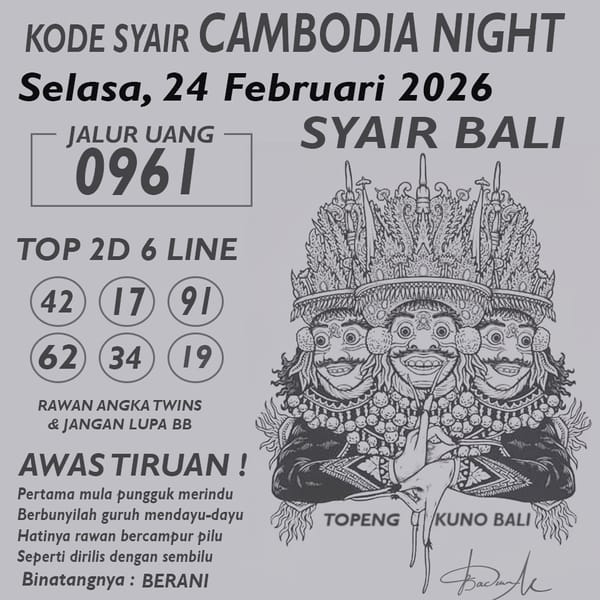 KODE SYAIR CAMBODIA NIGHT
Selasa, 24 Februari 2026
JALUR UANG
0961
SYAIR BALI
TOP 2D 6 LINE
42 17 91
62 34 19
RAWAN ANGKA TWINS
& JANGAN LUPA BB
AWAS TIRUAN !
Pertama mula pungguk merindu
Berbunyilah guruh mendayu-dayu
Hatinya rawan bercampur pilu
Seperti dirilis dengan sembilu
Binatangnya : BERANI
TOPENG KUNO BALI